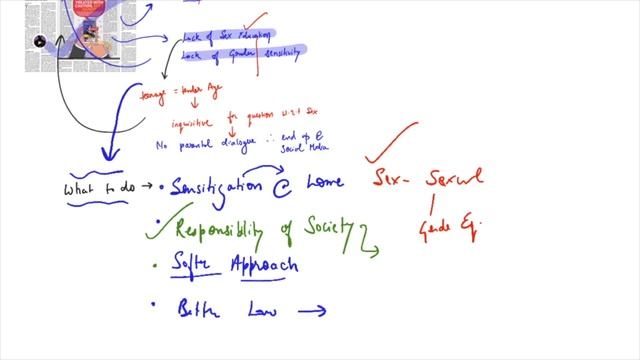 TREATED WITH CAUTION
Lack of Sex Education
Lack of Gender Sensitivity
teenage = tender Age
inquisitive for question w.r.t sex
No parental dialogue ∴ end up @
Social Media
What to do → • Sensitization @ home
Sex - Sexual
Gende Eq.
• Responsiblity of Society
• Softr Approach
• Bettr Law →